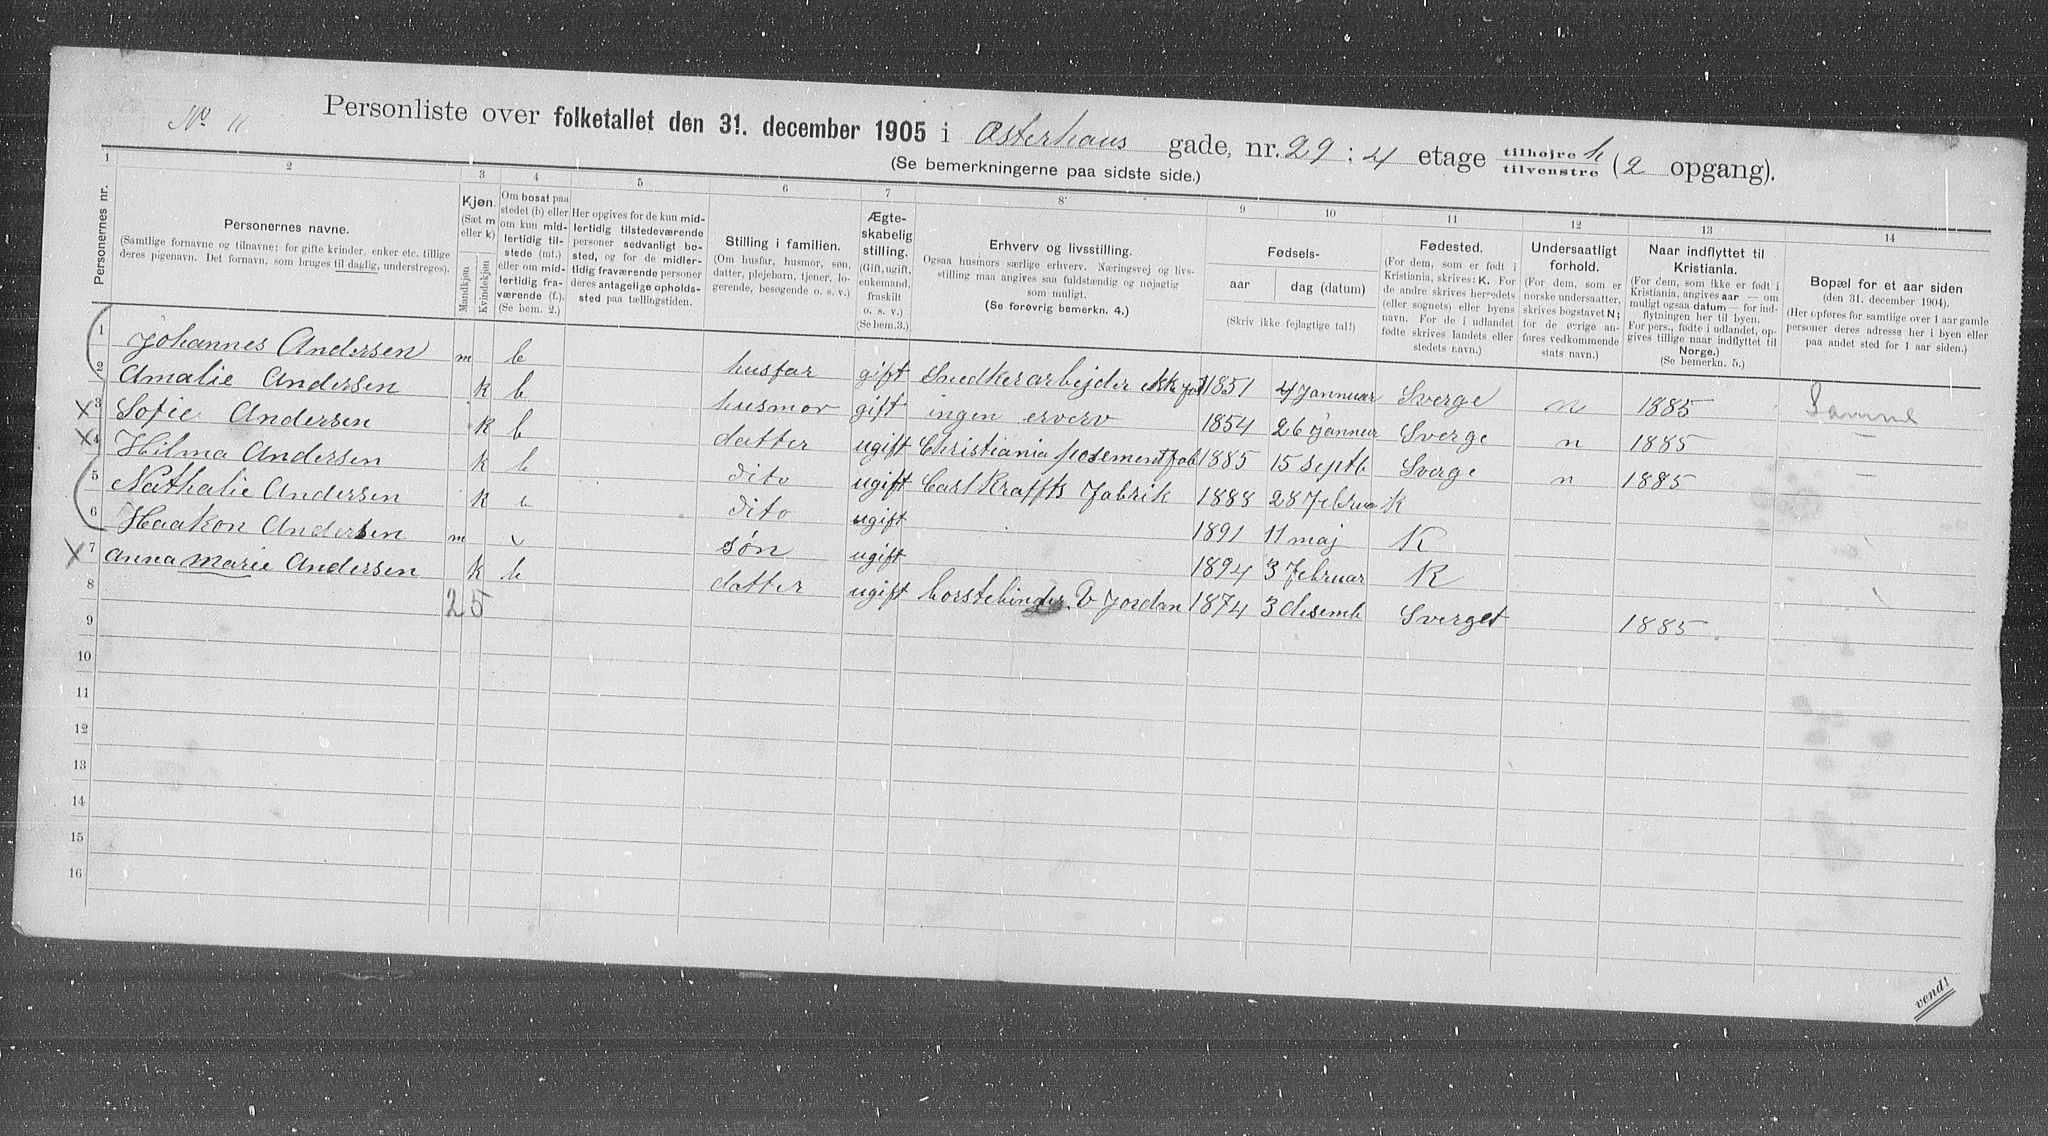 No 11.
Personliste over folketallet den 31. december 1905 i Osterhaus gade, nr. 29 ; 4 etage tilhøjre tilvenstre h (2 opgang).
(Se bemerkningerne paa sidste side.)
1 2 3 4 5 6 7 8 9 10 11 12 13 14
Personernes nr.
Personernes navne.
(Samtlige fornavne og tilnavne; for gifte kvinder, enker etc. tillige
deres pigenavn. Det fornavn, som bruges til daglig, understreges).
Kjøn.
(Sæt m
eller k)
Mandkjøn
Kvindekjøn
Om bosat paa
stedet (b) eller
om kun mid-
lertidig til-
stede (mt.)
eller om mid-
lertidig fra-
værende (f.).
(Se bem. 2.)
Her opgives for de kun mid-
lertidig tilstedeværende
personer sedvanligt bo-
sted, og for de midler-
tidig fraværende personer
deres antagelige opholds-
sted paa tællingstiden.
Stilling i familien.
(Om husfar, husmor, søn,
datter, plejebarn, tjener, lo-
gerende, besøgende o. s. v.)
Ægte-
skabelig
stilling.
(Gift, ugift,
enkemand,
fraskilt
o. s. v.)
(Se bem. 3.)
Erhverv og livsstilling.
Ogsaa husmors særlige erhverv. Næringsvej og livs-
stilling maa angives saa fuldstændig og nøjagtig
som muligt.
(Se forøvrig bemerkn. 4.)
Fødsels-
aar
dag (datum)
(Skriv ikke fejlagtige tal!)
Fødested.
(For dem, som er født i
Kristiania, skrives: K. For
de andre skrives herredets
(eller sognets) eller byens
navn. For de i udlandet
fødte skrives landets eller
stedets navn.)
Undersaatligt
forhold.
(For dem, som er
norske undersaatter,
skrives bogstavet N;
for de øvrige an-
føres vedkommende
stats navn.)
Naar indflyttet til
Kristiania.
(For dem, som ikke er født i
Kristiania, angives aar — om
muligt ogsaa datum — for ind-
flytningen her til byen.
For pers., fødte i udlandet, op-
gives tillige naar indflyttet til
Norge.)
(Se bemerkn. 5.)
Bopæl for et aar siden
(den 31. december 1904).
(Her opføres for samtlige over 1 aar gamle
personer deres adresse her i byen eller
paa andet sted for 1 aar siden.)
1 Johannes Andersen m b husfar gift Snedkerarbejder 1851 4 Jannuar Sverge n 1885
2 Amalie Andersen k b husmor gift ingen erverv 1854 26 Jannur Sverge n 1885 —
x 3 Sofie Andersen k b datter ugift Christiania posementfab 1885 15 septb Sverge n 1885 —
x 4 Hilma Andersen k b dito ugift Carl Kraffts Fabrik 1888 28 Februa K
5 Nathalie Andersen k b dito ugift 1891 11 maj K
6 Haakon Andersen m søn ugift 1894 3 Februar K
x 7 Anna Marie Andersen k b datter ugift borstebinder. D Jordan 1874 3 desemb Sverget 1885.
8 2 5
9
10
11
12
13
14
15
16
vend!